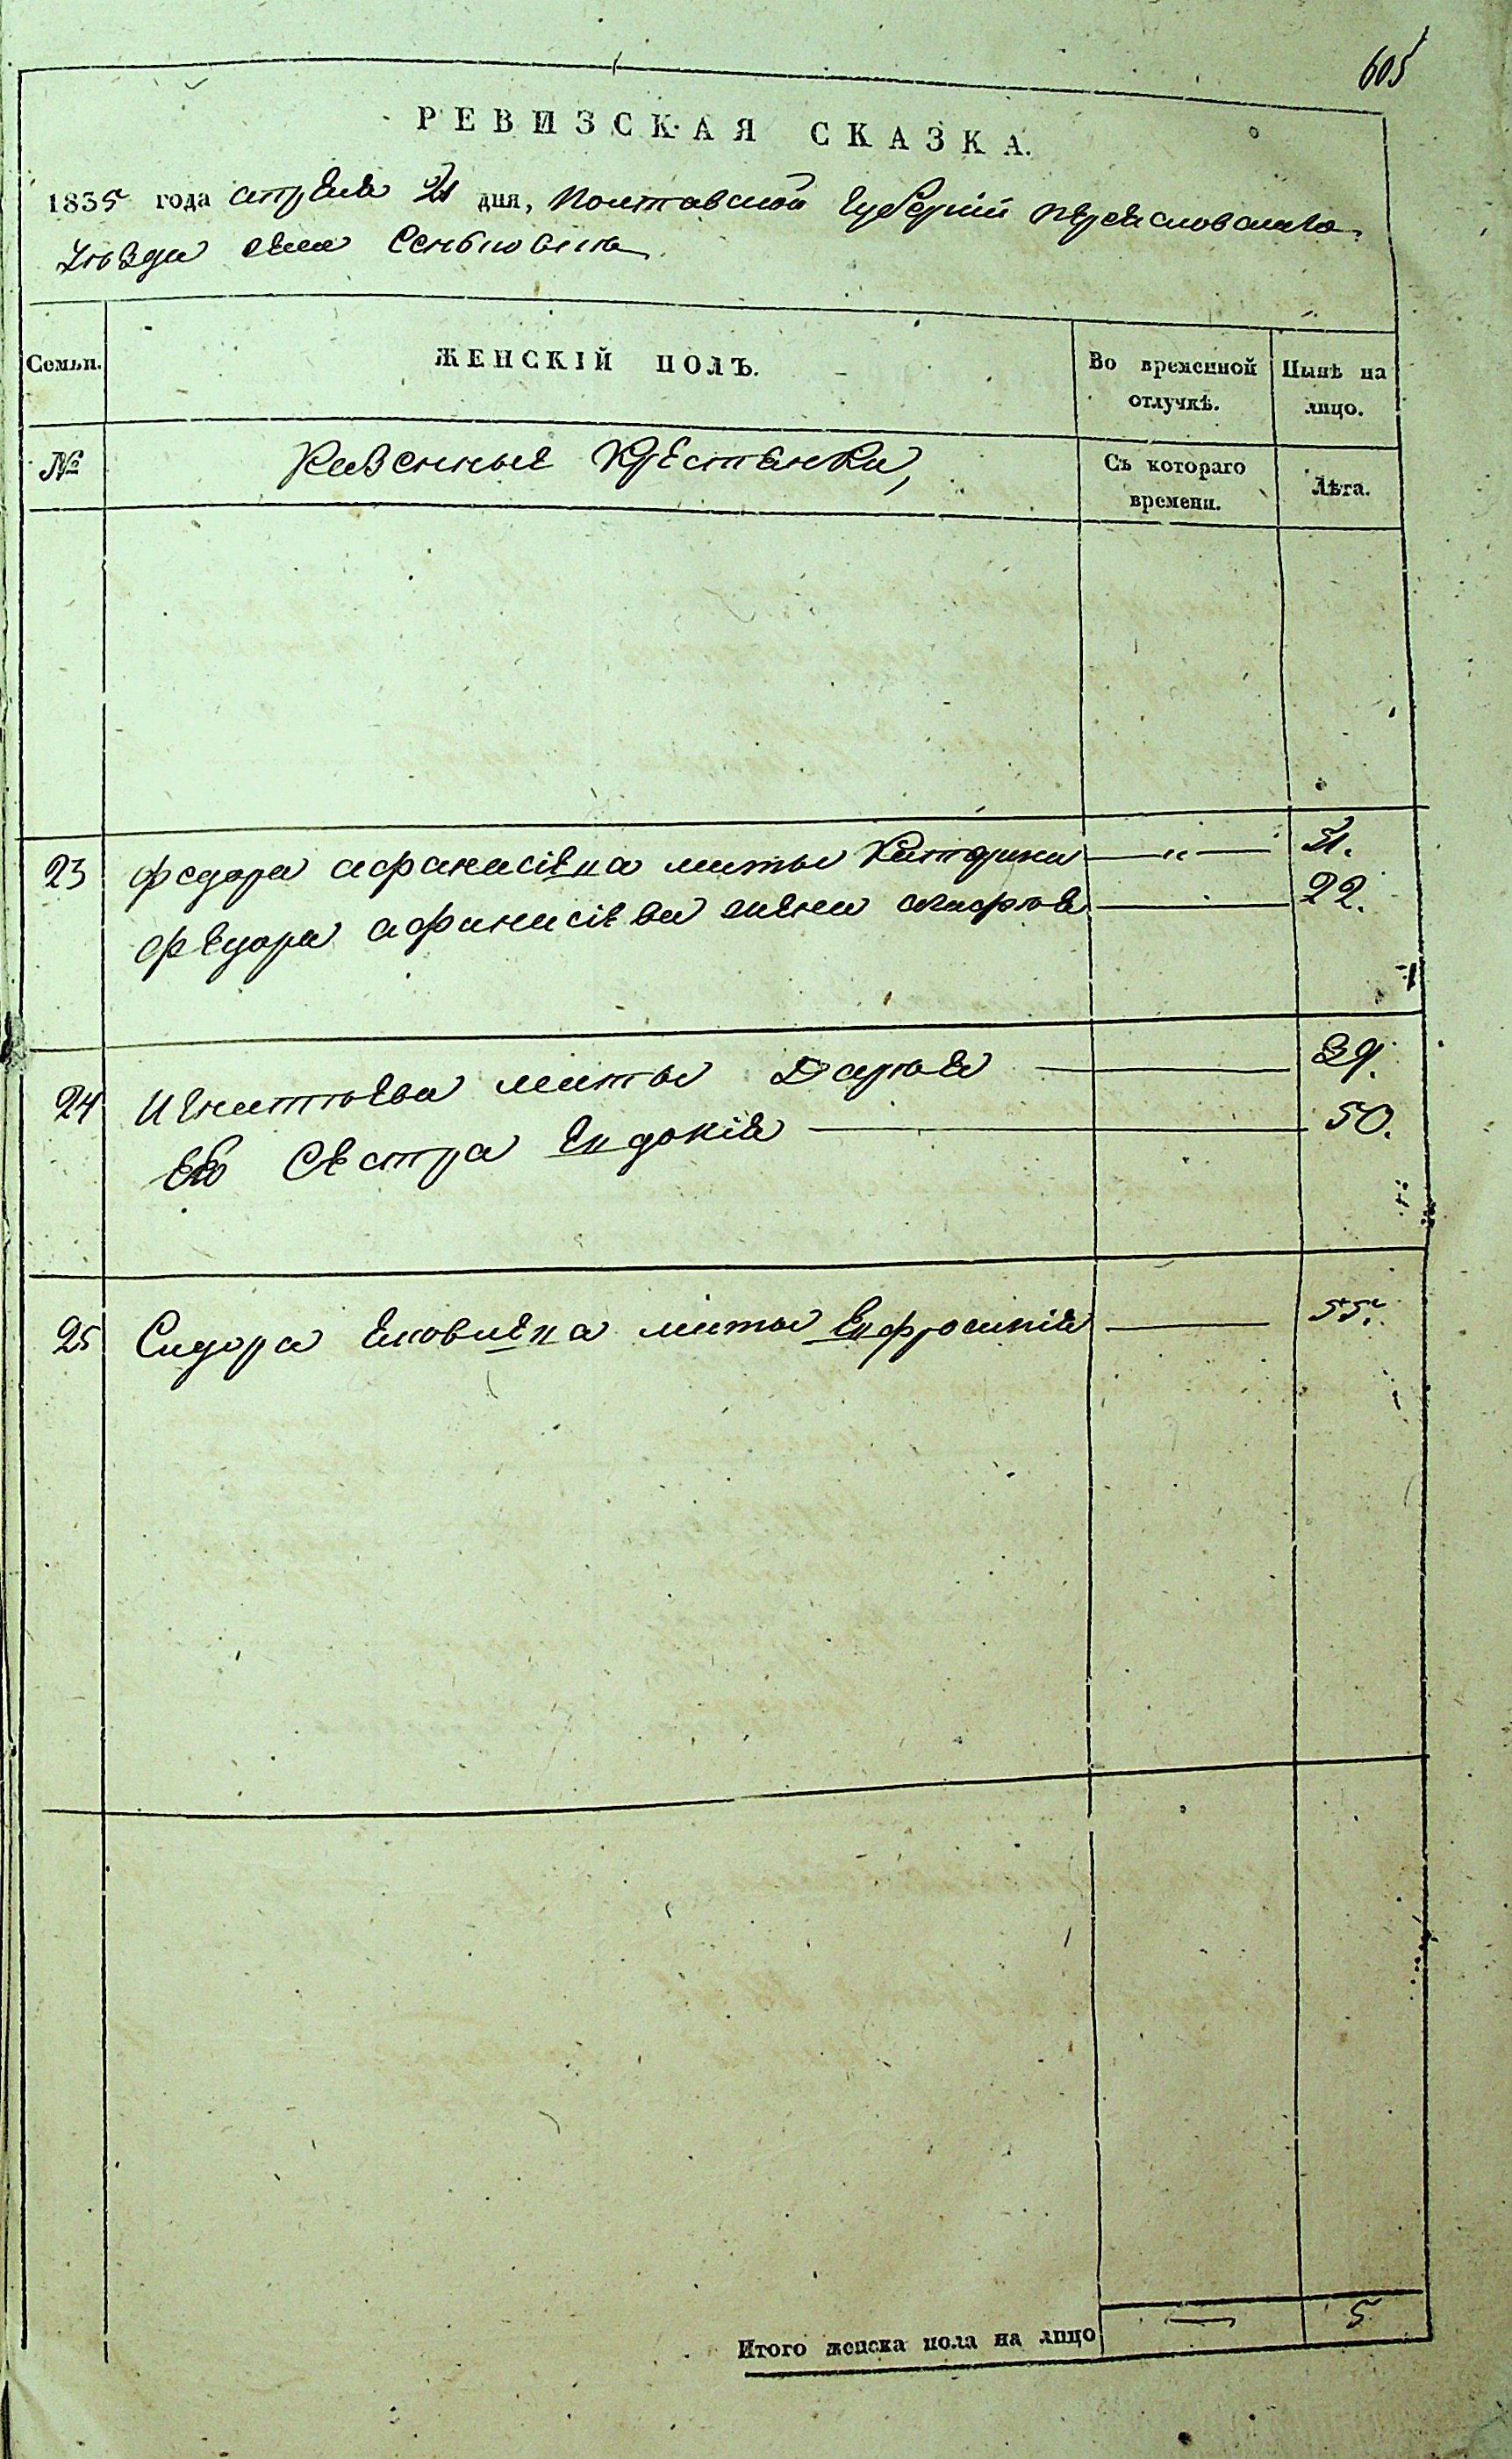 605
РЕВИЗСКАЯ СКАЗКА.
1835 года апреля 21 дня, Полтавской губернии Переясловскаго
уезда села Сеньковки
Семьи. ЖЕНСКІЙ ПОЛЪ. Во временной отлучкѣ. Нынѣ на лицо.
№ Казенные крестянки, Съ котораго времени. Лѣта.
23 Федора афанасіева мать Катерина — „ — 51.
Федора афанасіева жена агафия — 22.
24 Игнатиева мать Дария — 39.
Его Сестра Евдокия — 50.
25 Сидора Яковлева мать Евфросиния — 55.
Итого женска пола на лицо — 5